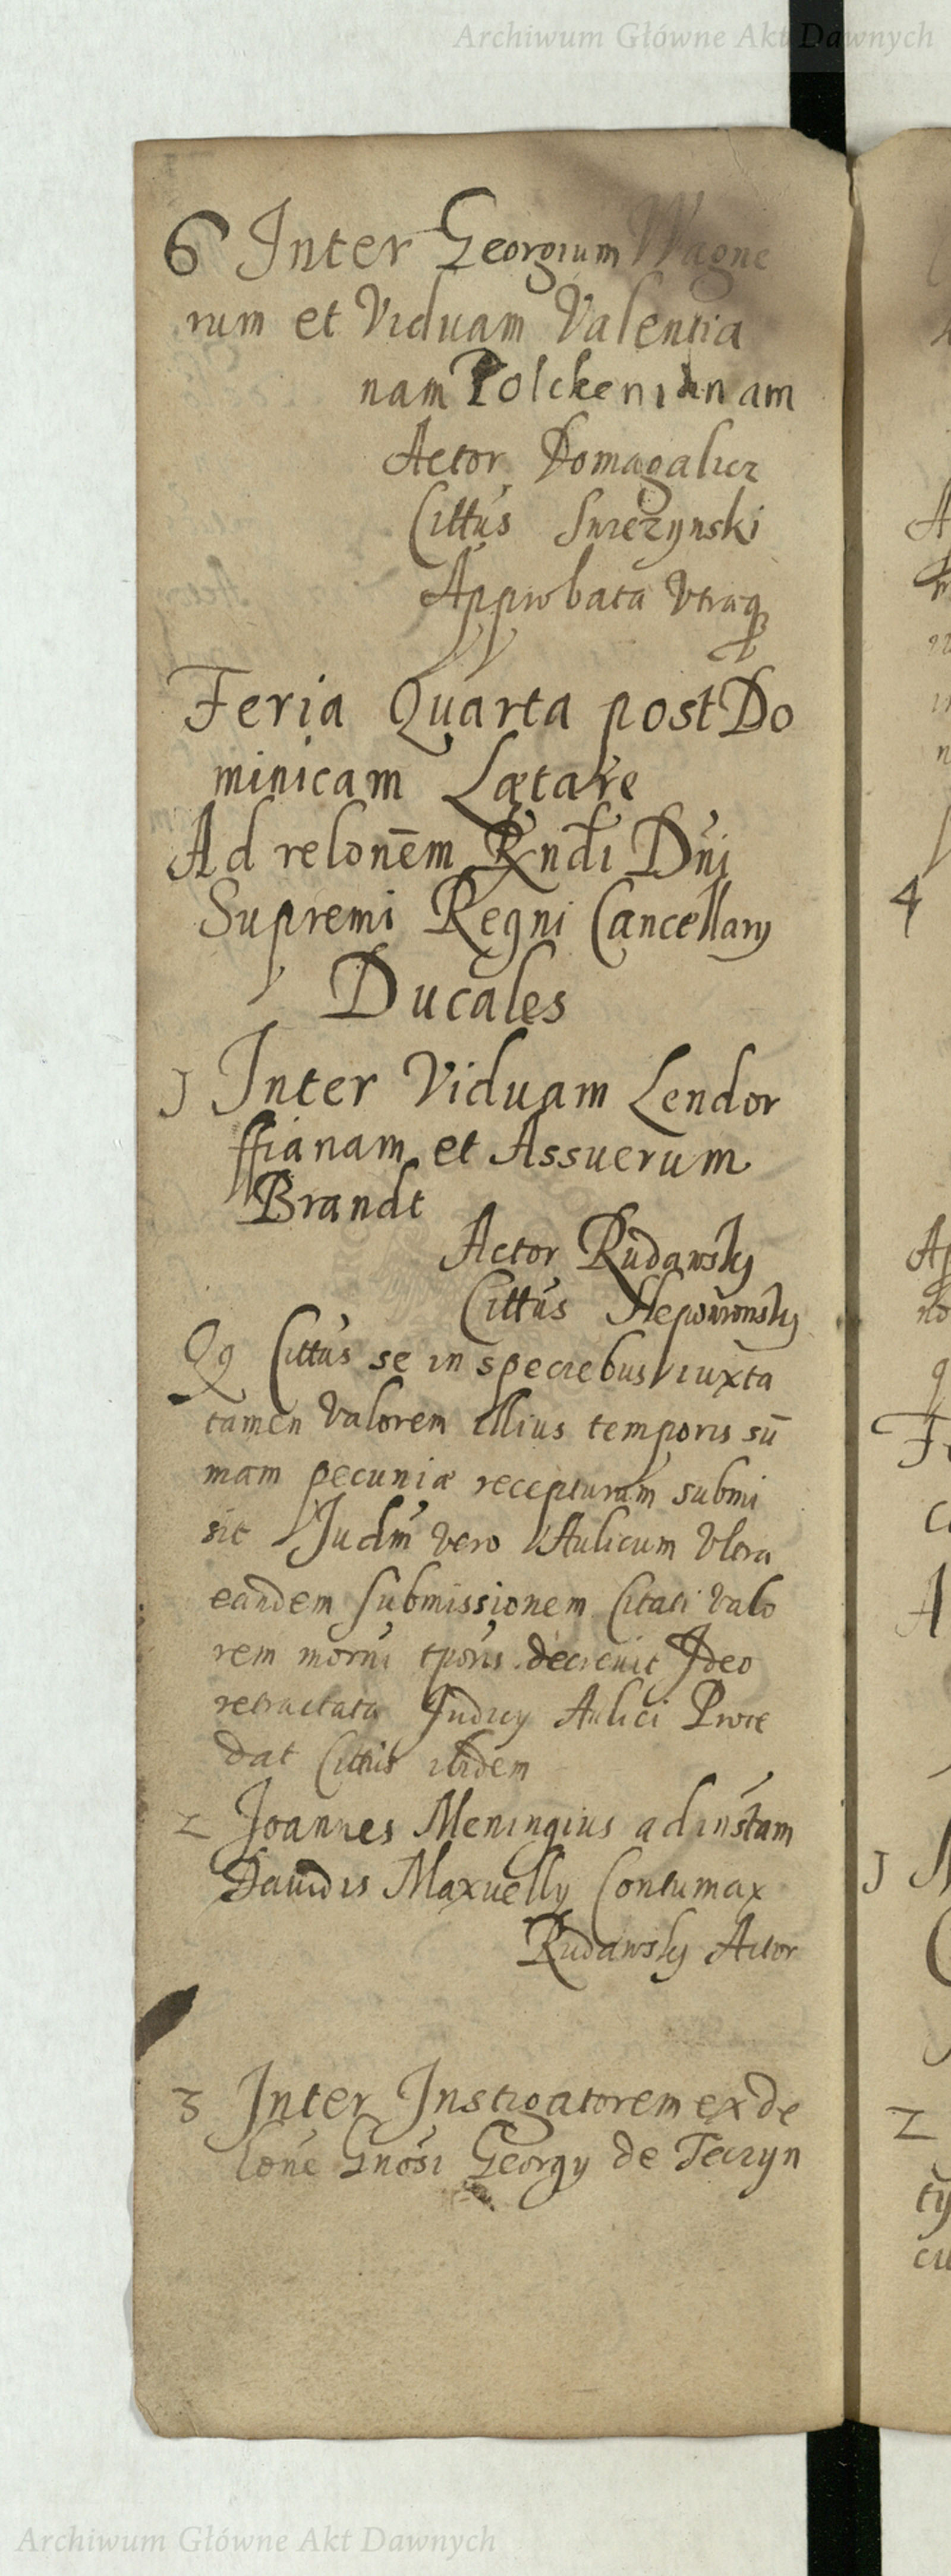 Archiwum Główne Akt Dawnych
6 Inter Georgium Wagne
rum et Viduam Valentia
nam Polckenianam
Actor Domagalicz
Cittus Swiezynski
Approbata Utraq
Feria Quarta post Do
minicam Lætare
Ad relonem Rndi Dni
Supremi Regni Cancellary
Ducales
1 Inter Viduam Lendor
ffianam et Assuerum
Brandt
Actor Rudawsky
Cittus
Qq Cittus se in speciebus iuxta
tamen Valorem illius temporis sū
mam pecuniæ recepturam submi
sit Judm vero Aulicum Ultra
eandem submissionem Citati valo
rem morni tporis decrevit Ideo
retractata Judicy Aulici Proce
dat Cittus ibidem
2 Joannes Meningius ad instam
Davidis Maxuelly Contumax
Rudawsky Actor
3 Inter Instigatorem ex de
lone Gnosi Georgy de Teczyn
4
1
2
Archiwum Główne Akt Dawnych